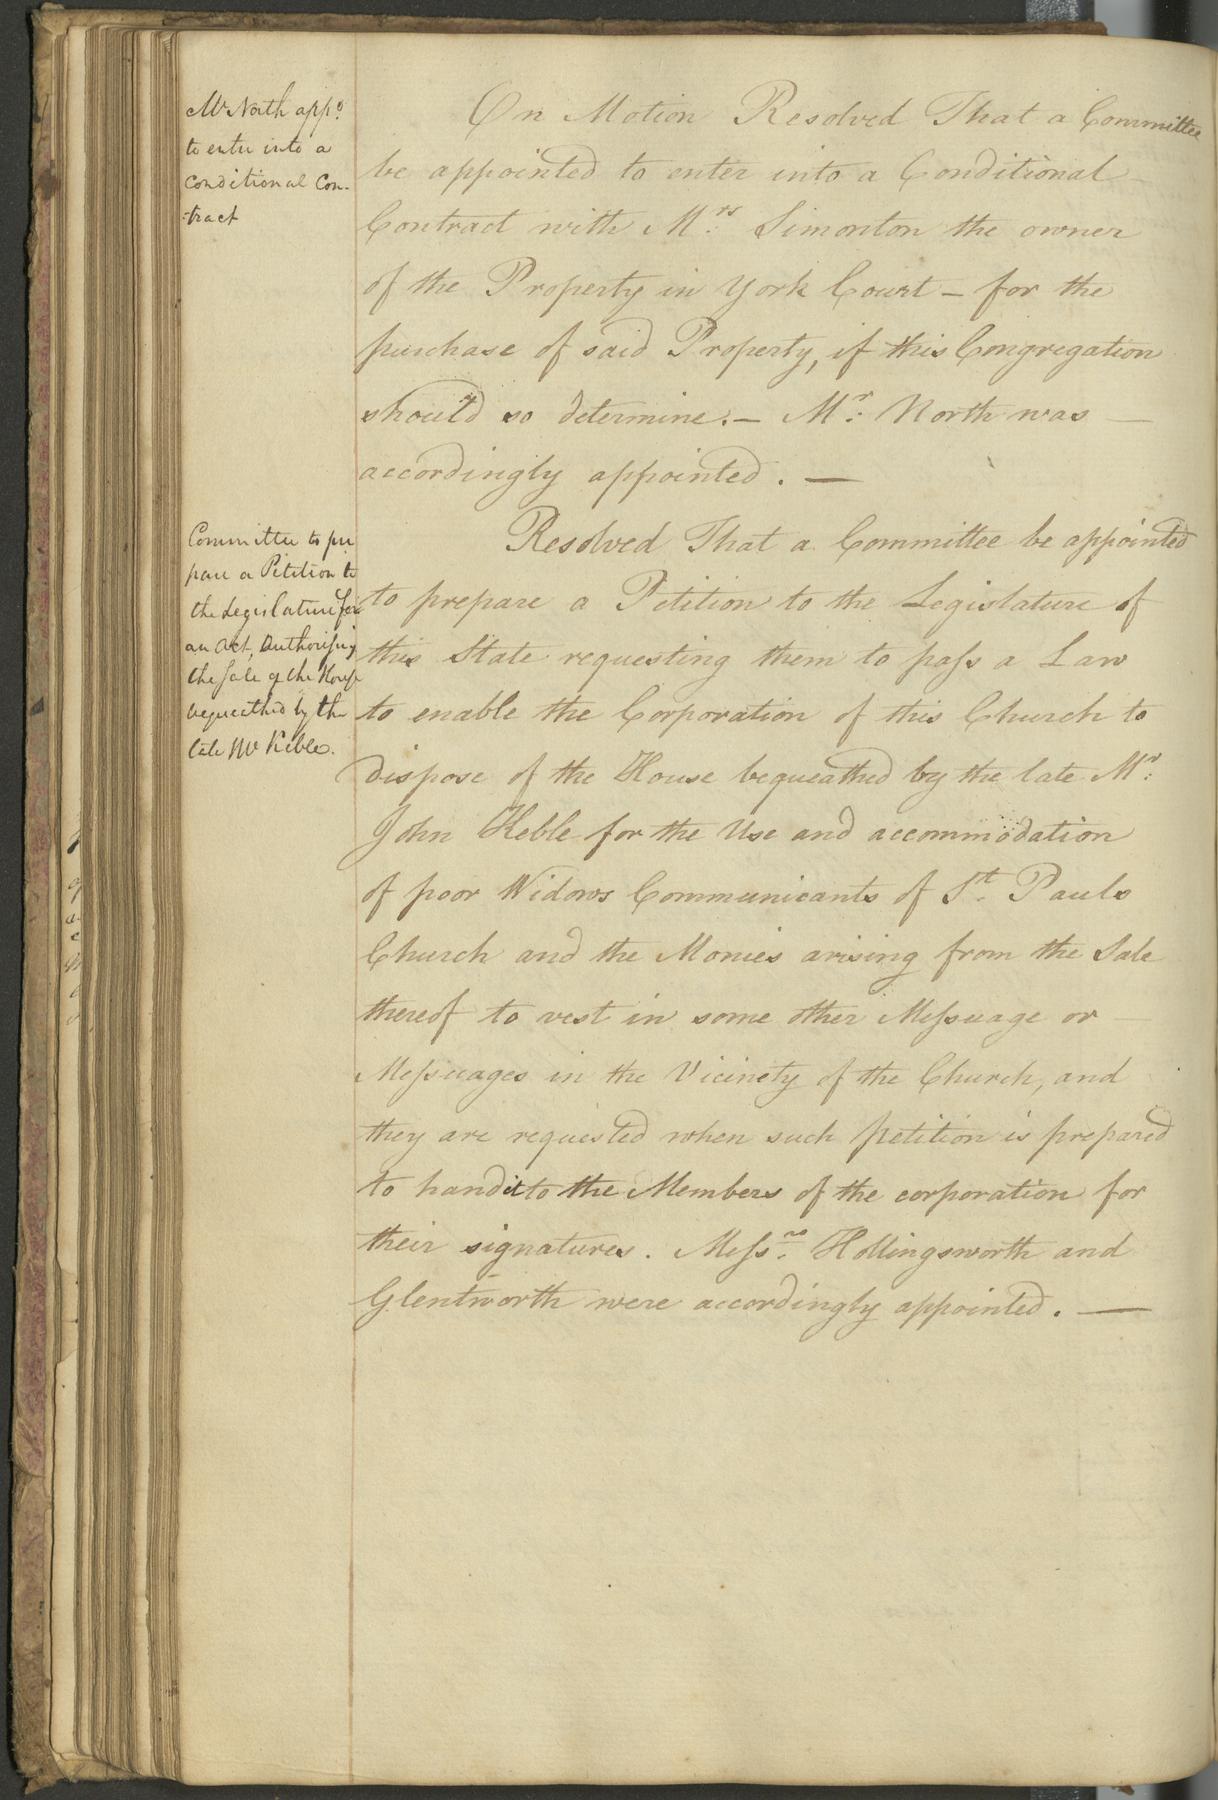 Mr North appd
to enter into a
conditional Con-
-tract
On Motion Resolved That a Committee
be appointed to enter into a Conditional
Contract with Mrs Simonton the owner
of the Property in York Court – for the
purchase of said Property, if this Congregation
should so determine. – Mr North was —
accordingly appointed. —
Committee to pre
pare a Petition to
the Legislature for
an Act, Authorising
the sale of the House
bequeathed by the
late Mr Keble.
Resolved That a Committee be appointed
to prepare a Petition to the Legislature of
this State requesting them to pass a Law
to enable the Corporation of this Church to
dispose of the House bequeathed by the late Mr
John Keble for the Use and accommodation
of poor Widows Communicants of St. Pauls
Church and the Monies arising from the Sale
thereof to vest in some other Messuage or —
Messuages in the Vicinety of the Church, and
they are requested when such petition is prepared
to hand it to the Members of the corporation for
their signatures. Messrs Hollingsworth and
Glentworth were accordingly appointed. —